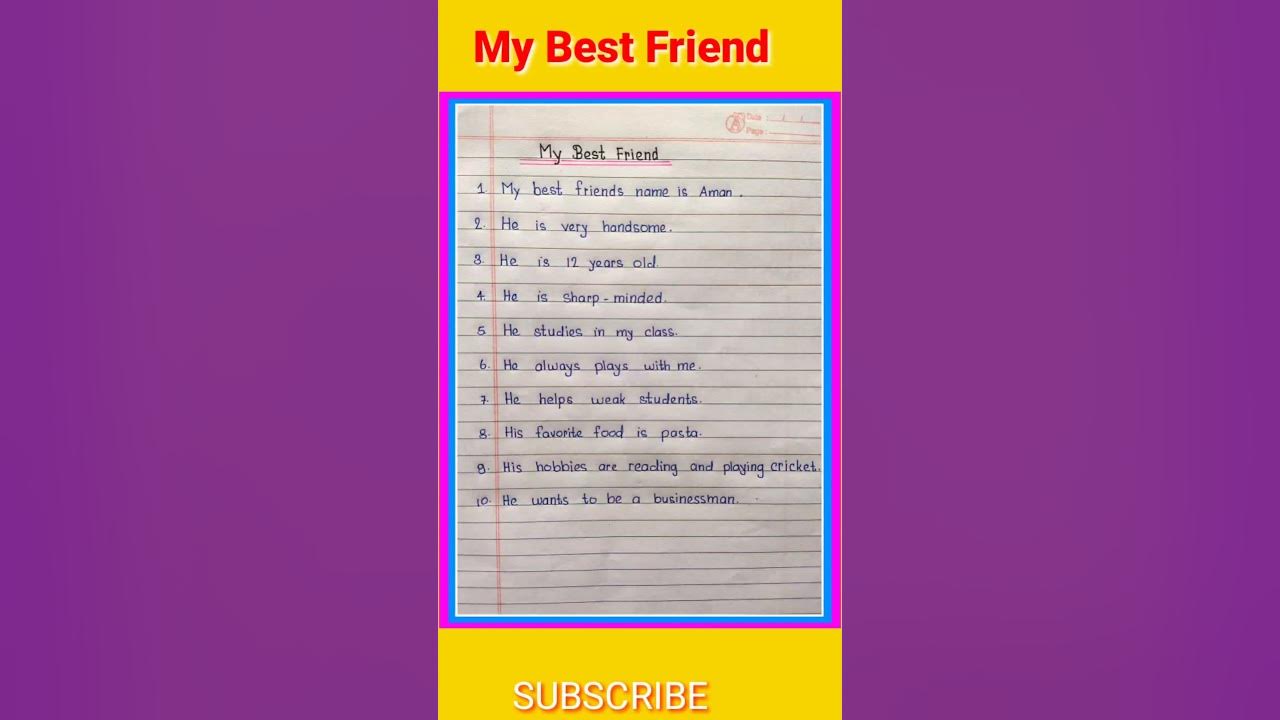 My Best Friend
Date : / /
Page :
My Best Friend
1. My best friends name is Aman.
2. He is very handsome.
3. He is 12 years old.
4. He is sharp-minded.
5 He studies in my class.
6. He always plays with me.
7. He helps weak students.
8. His favorite food is pasta.
9. His hobbies are reading and playing cricket.
10. He wants to be a businessman.
SUBSCRIBE